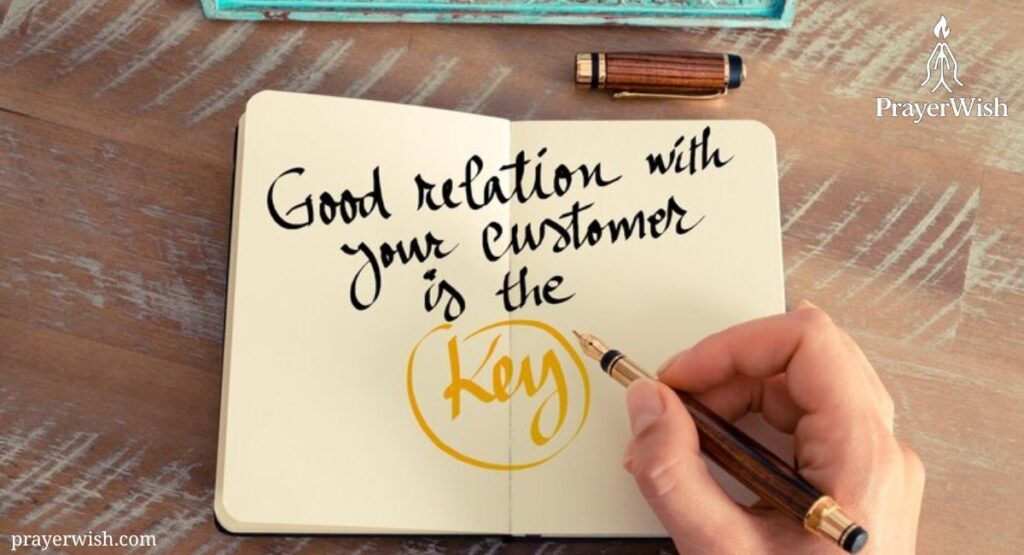 PrayerWish
Good relation with
your customer
is the
Key
prayerwish.com